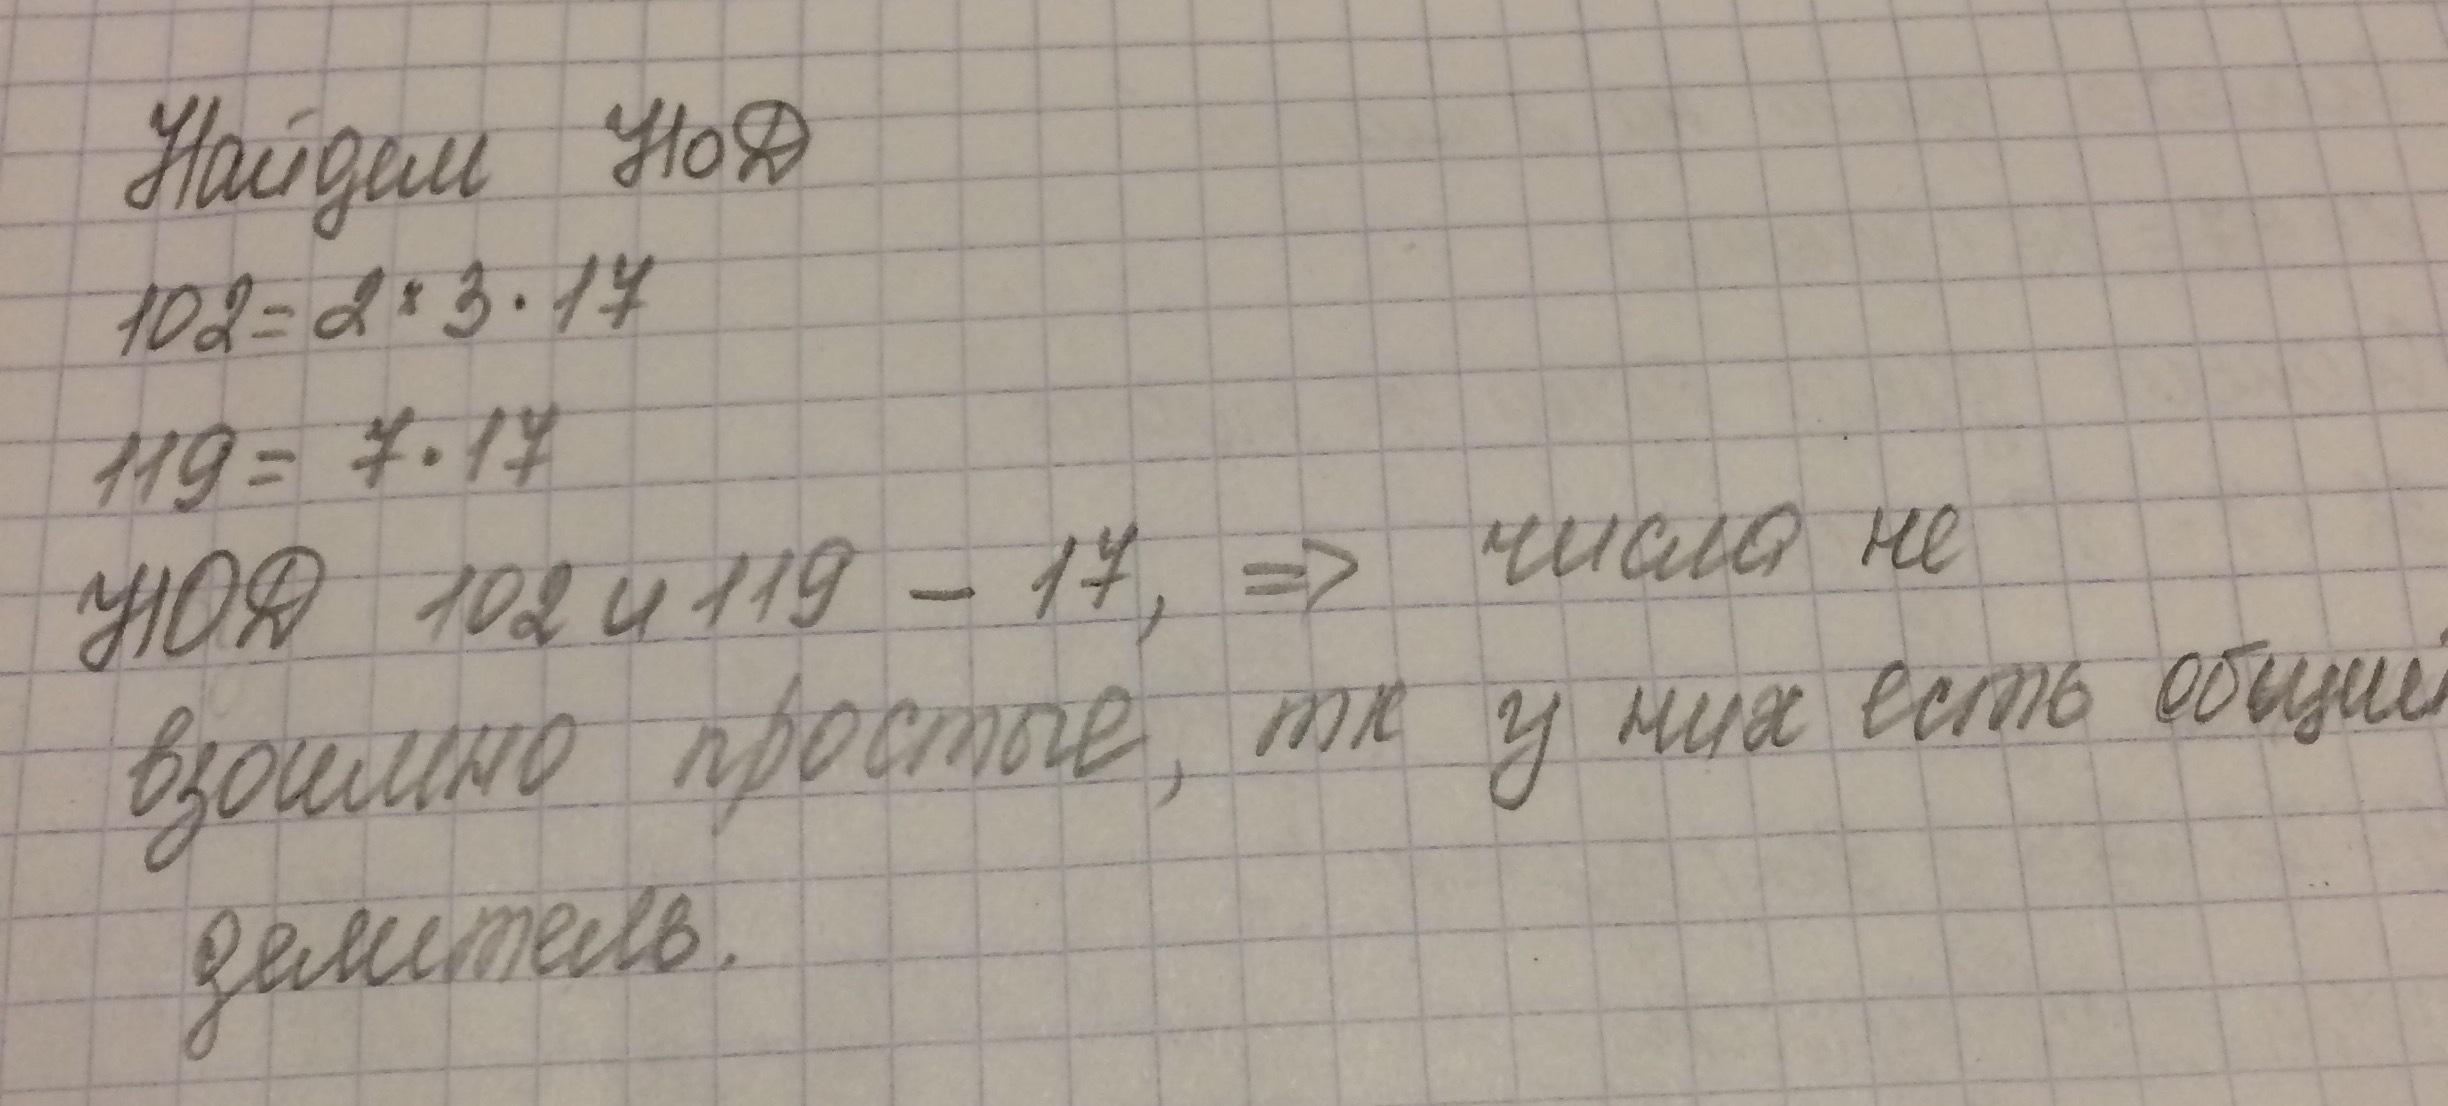 Найдем НОД
102=2·3·17
119=7·17
НОД 102 и 119 – 17, => числа не
взоимно простые, тк у них есть общий
делитель.